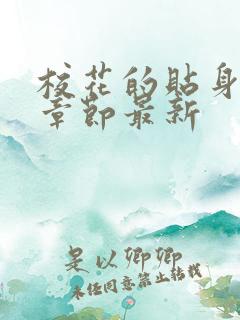 校花的貼身
章節最新
是以卿卿
未经同意禁止转载